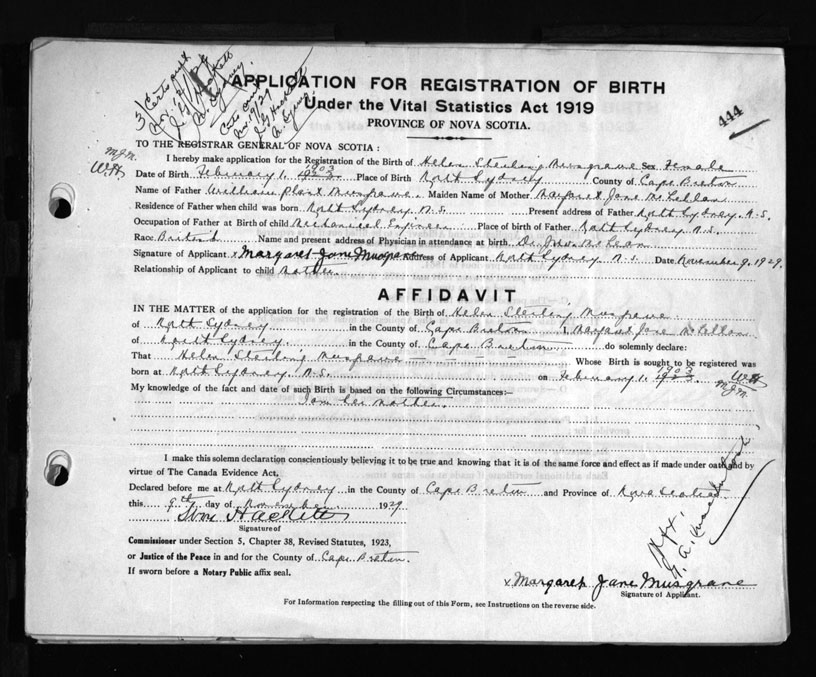 3) Certs
APPLICATION FOR REGISTRATION OF BIRTH
Under the Vital Statistics Act 1919
444
PROVINCE OF NOVA SCOTIA.
TO THE REGISTRAR GENERAL OF NOVA SCOTIA:
M.J.M.
I hereby make application for the Registration of the Birth of Helen Sterling Musgrave Sex Female
Date of Birth February 1. 1903 Place of Birth North Sydney County of Cape Breton
Name of Father William Plant Musgrave Maiden Name of Mother Margaret Jane McLellan
Residence of Father when child was born North Sydney N.S. Present address of Father North Sydney, N.S.
Occupation of Father at Birth of child Mechanical Engineer Place of birth of Father North Sydney N.S.
Race British Name and present address of Physician in attendance at birth Dr. John McLean
Signature of Applicant x Margaret Jane Musgrave Address of Applicant North Sydney N.S. Date November 9, 1929.
Relationship of Applicant to child Mother
AFFIDAVIT
IN THE MATTER of the application for the registration of the Birth of Helen Sterling Musgrave
of North Sydney in the County of Cape Breton I, Margaret Jane McLellan
of North Sydney. in the County of Cape Breton do solemnly declare:
That Helen Sterling Musgrave Whose Birth is sought to be registered was
born at North Sydney N.S. on February 1. 1903
M.J.M.
My knowledge of the fact and date of such Birth is based on the following Circumstances:—
I am her mother.
I make this solemn declaration conscientiously believing it to be true and knowing that it is of the same force and effect as if made under oath and by
virtue of The Canada Evidence Act.
Declared before me at North Sydney in the County of Cape Breton and Province of Nova Scotia
this 9th day of November 1929
Hackett
Signature of
Commissioner under Section 5, Chapter 38, Revised Statutes, 1923,
or Justice of the Peace in and for the County of Cape Breton.
If sworn before a Notary Public affix seal.
x Margaret Jane Musgrave
Signature of Applicant.
For Information respecting the filling out of this Form, see Instructions on the reverse side.